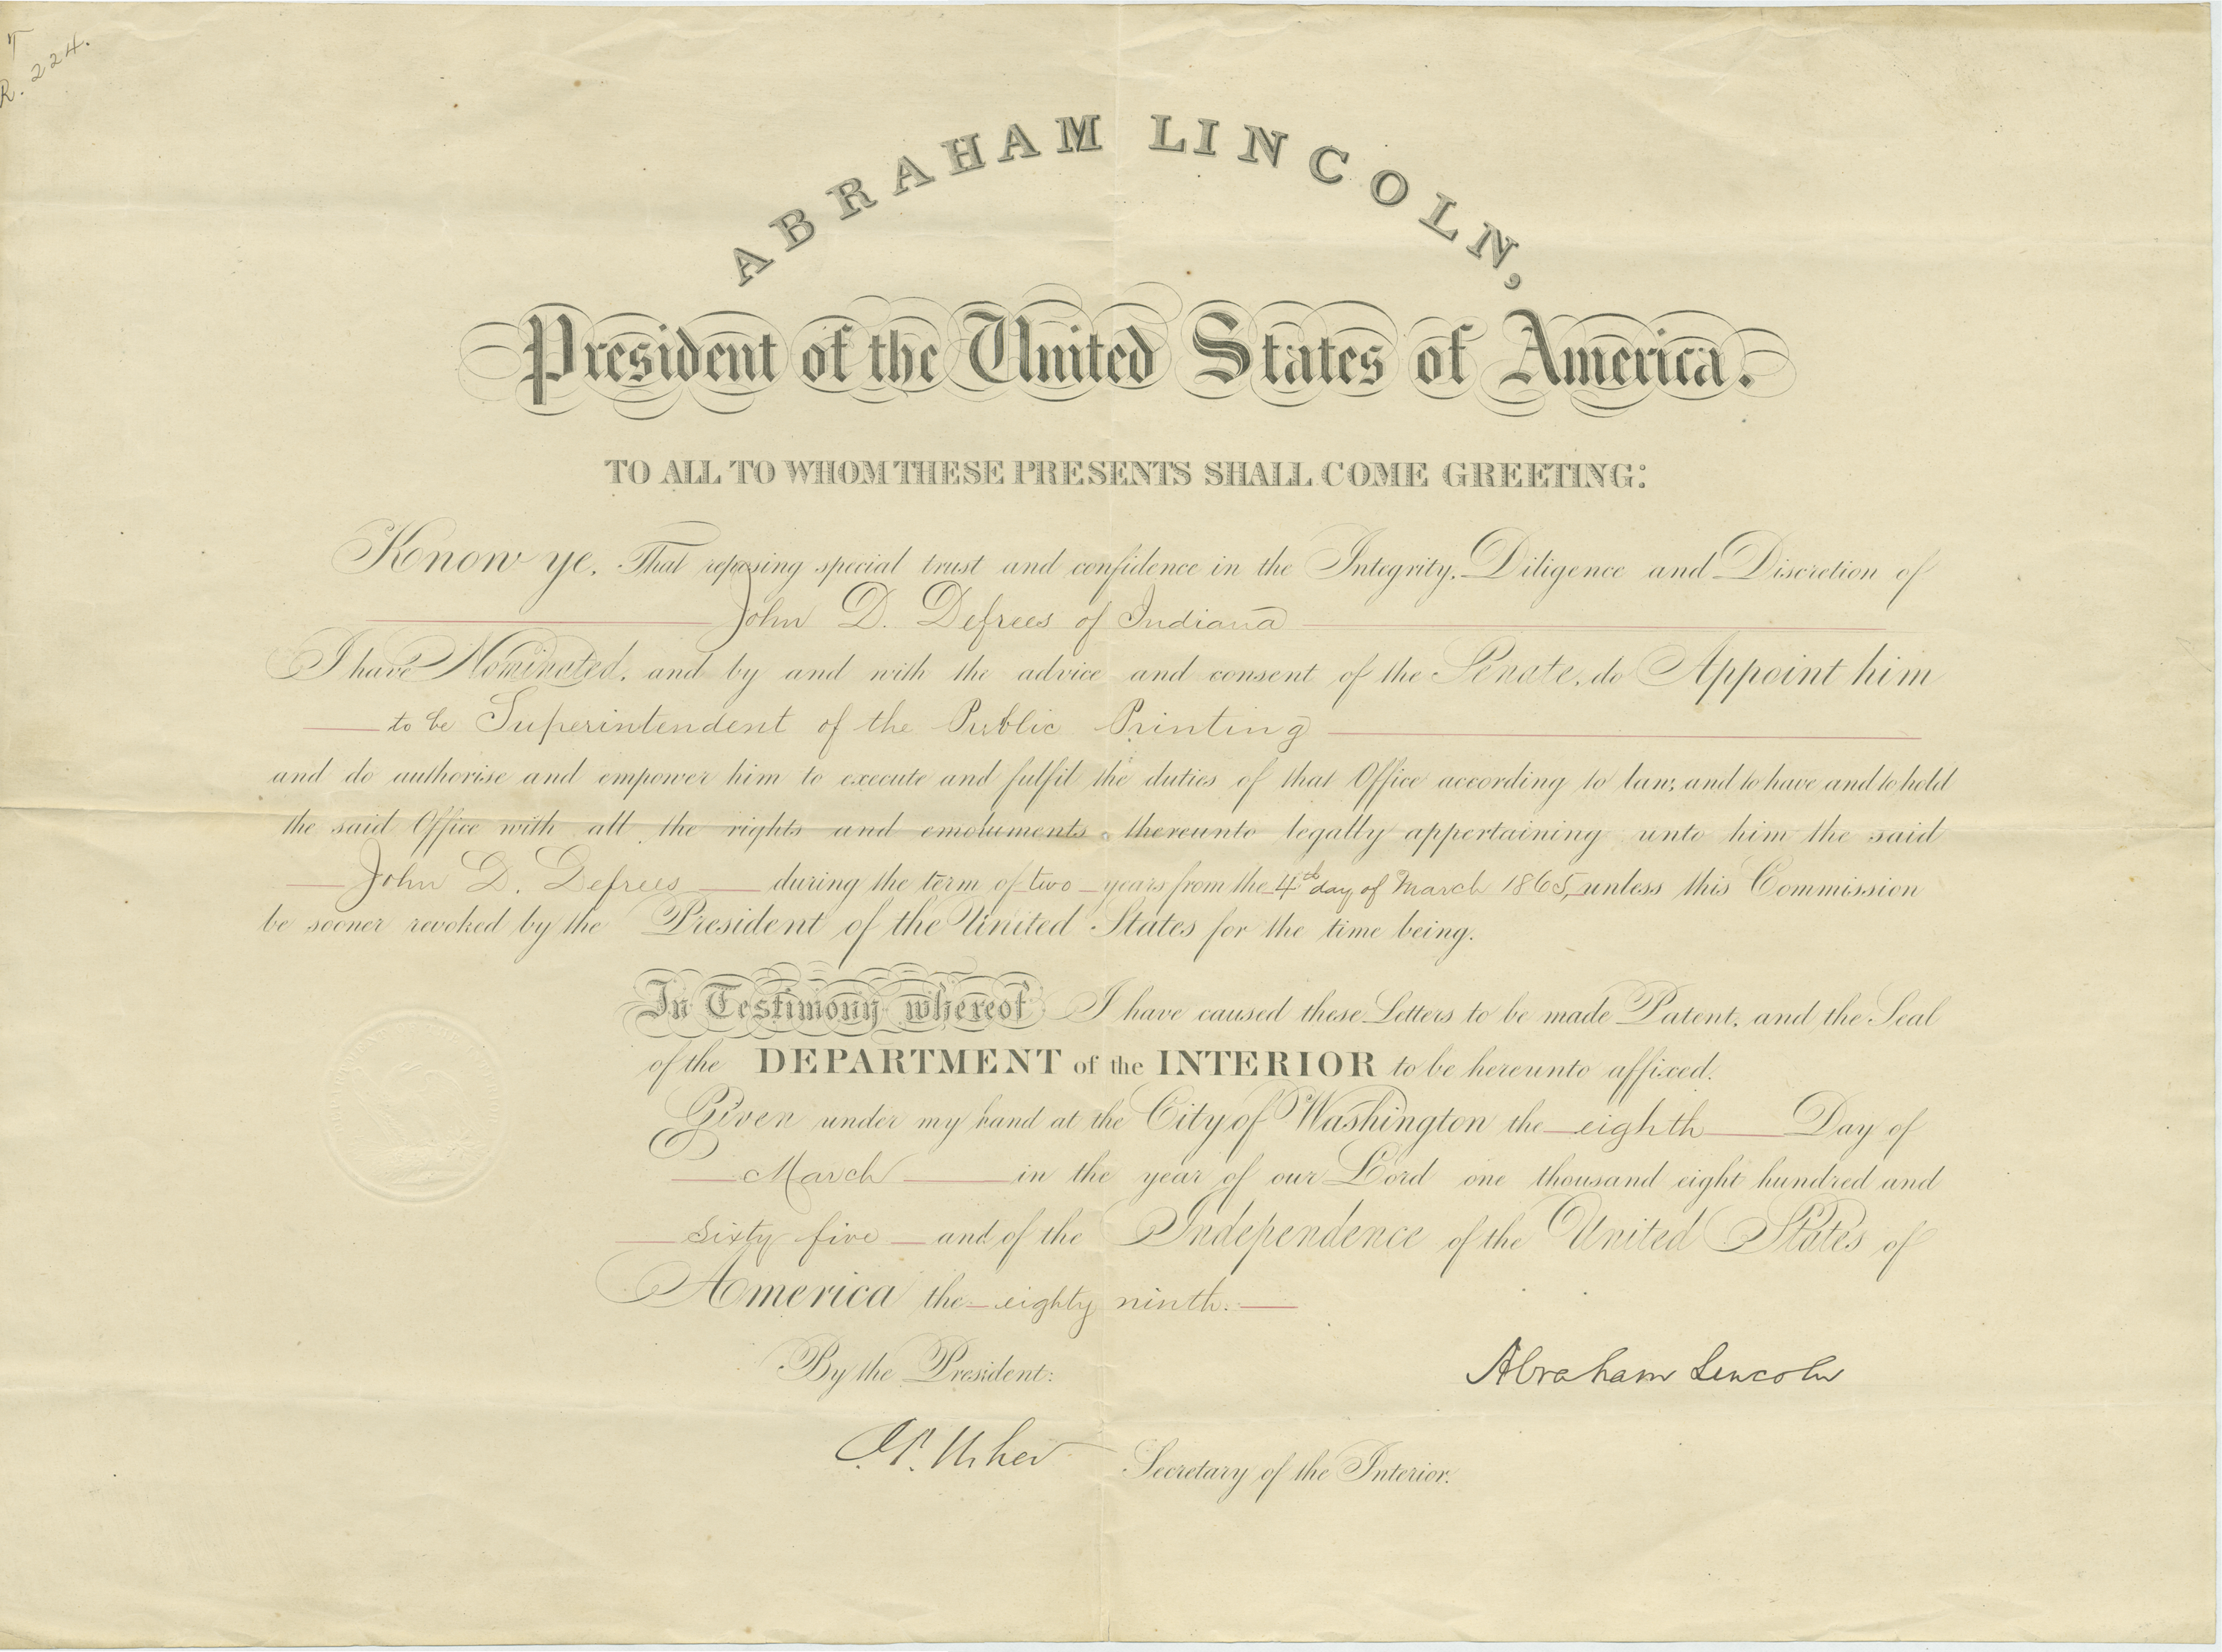 T
R. 224.
ABRAHAM LINCOLN,
President of the United States of America.
TO ALL TO WHOM THESE PRESENTS SHALL COME GREETING:
Know ye, That reposing special trust and confidence in the Integrity, Diligence and Discretion of
John D. Defrees of Indiana
I have Nominated, and by and with the advice and consent of the Senate, do Appoint him
to be Superintendent of the Public Printing
and do authorise and empower him to execute and fulfil the duties of that Office according to law; and to have and to hold
the said Office with all the rights and emoluments thereunto legally appertaining unto him the said
John D. Defrees during the term of two years from the 4th day of March 1865, unless this Commission
be sooner revoked by the President of the United States for the time being.
In Testimony whereof I have caused these Letters to be made Patent, and the Seal
of the DEPARTMENT of the INTERIOR to be hereunto affixed.
Given under my hand at the City of Washington the eighth Day of
March in the year of our Lord one thousand eight hundred and
sixty five and of the Independence of the United States of
America the eighty ninth.
By the President:
Abraham Lincoln
J. P. Usher Secretary of the Interior.